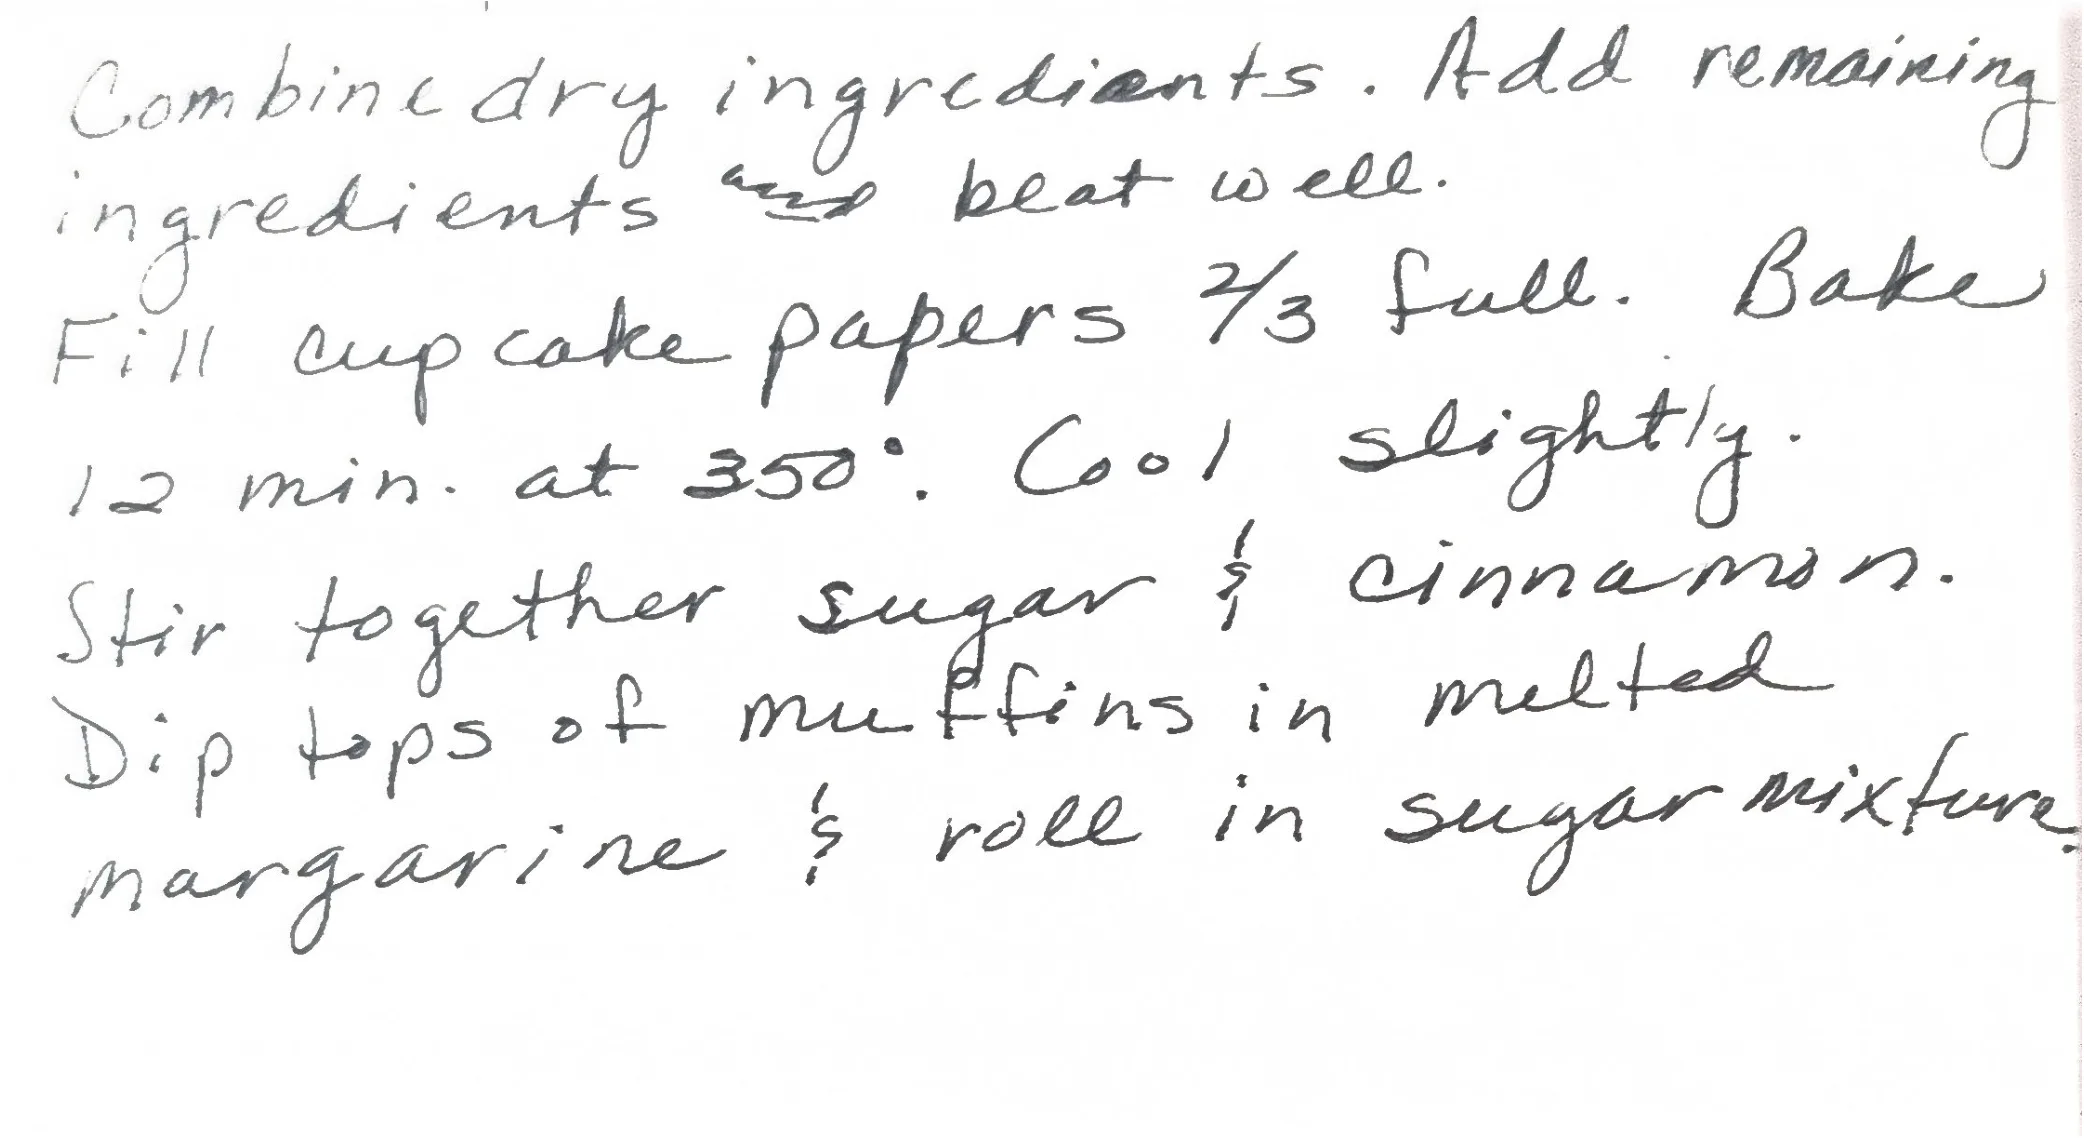 Combine dry ingredients. Add remaining
ingredients and beat well.
Fill cupcake papers 2/3 full. Bake
12 min. at 350°. Cool slightly.
Stir together sugar & cinnamon.
Dip tops of muffins in melted
margarine & roll in sugar mixture.